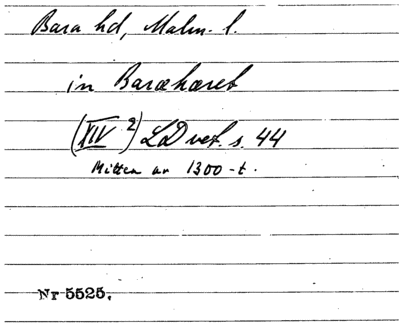 Bara hd, Malm. l.
in Baræhæret
(XIV 2) LDvet. s. 44
Mitten av 1300-t.
Nr 5525.